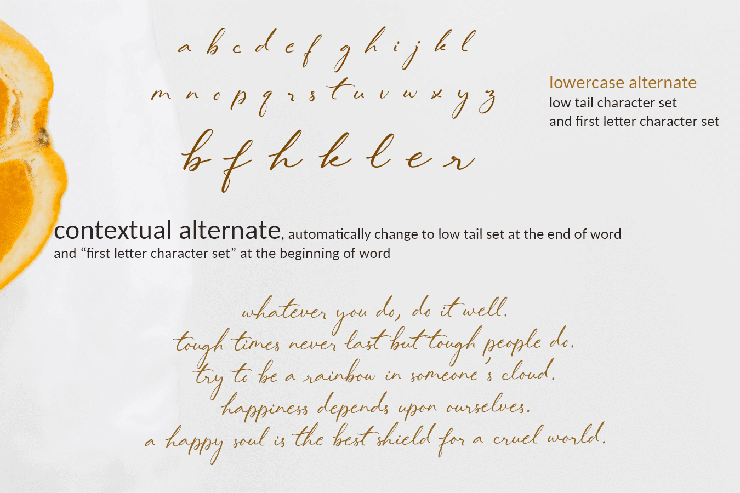 a b c d e f g h i j k l
lowercase alternate
low tail character set
and first letter character set
m n o p q r s t u v w x y z
b f h k l e r
contextual alternate, automatically change to low tail set at the end of word
and “first letter character set” at the beginning of word
whatever you do, do it well.
tough times never last but tough people do.
try to be a rainbow in someone's cloud.
happiness depends upon ourselves.
a happy soul is the best shield for a cruel world.